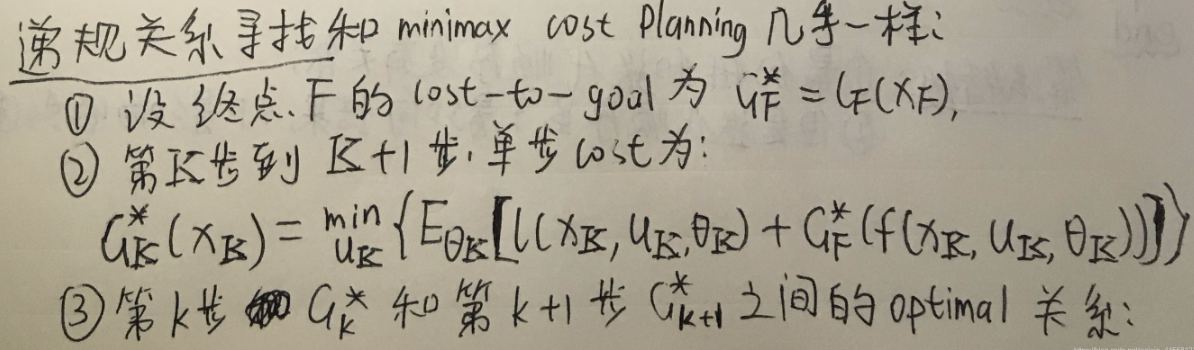 递规关系寻找和 minimax cost Planning 几乎一样:
① 设终点 F 的 cost-to-goal 为 G*_F = l_F(x_F),
② 第K步到 K+1 步,单步 cost 为:
G*_K(x_K) = min_{u_K} {E_{θ_K}[l(x_K, u_K, θ_K) + G*_F(f(x_K, u_K, θ_K))]}
③ 第 k 步 G*_k 和第 k+1 步 G*_{k+1} 之间的 optimal 关系: